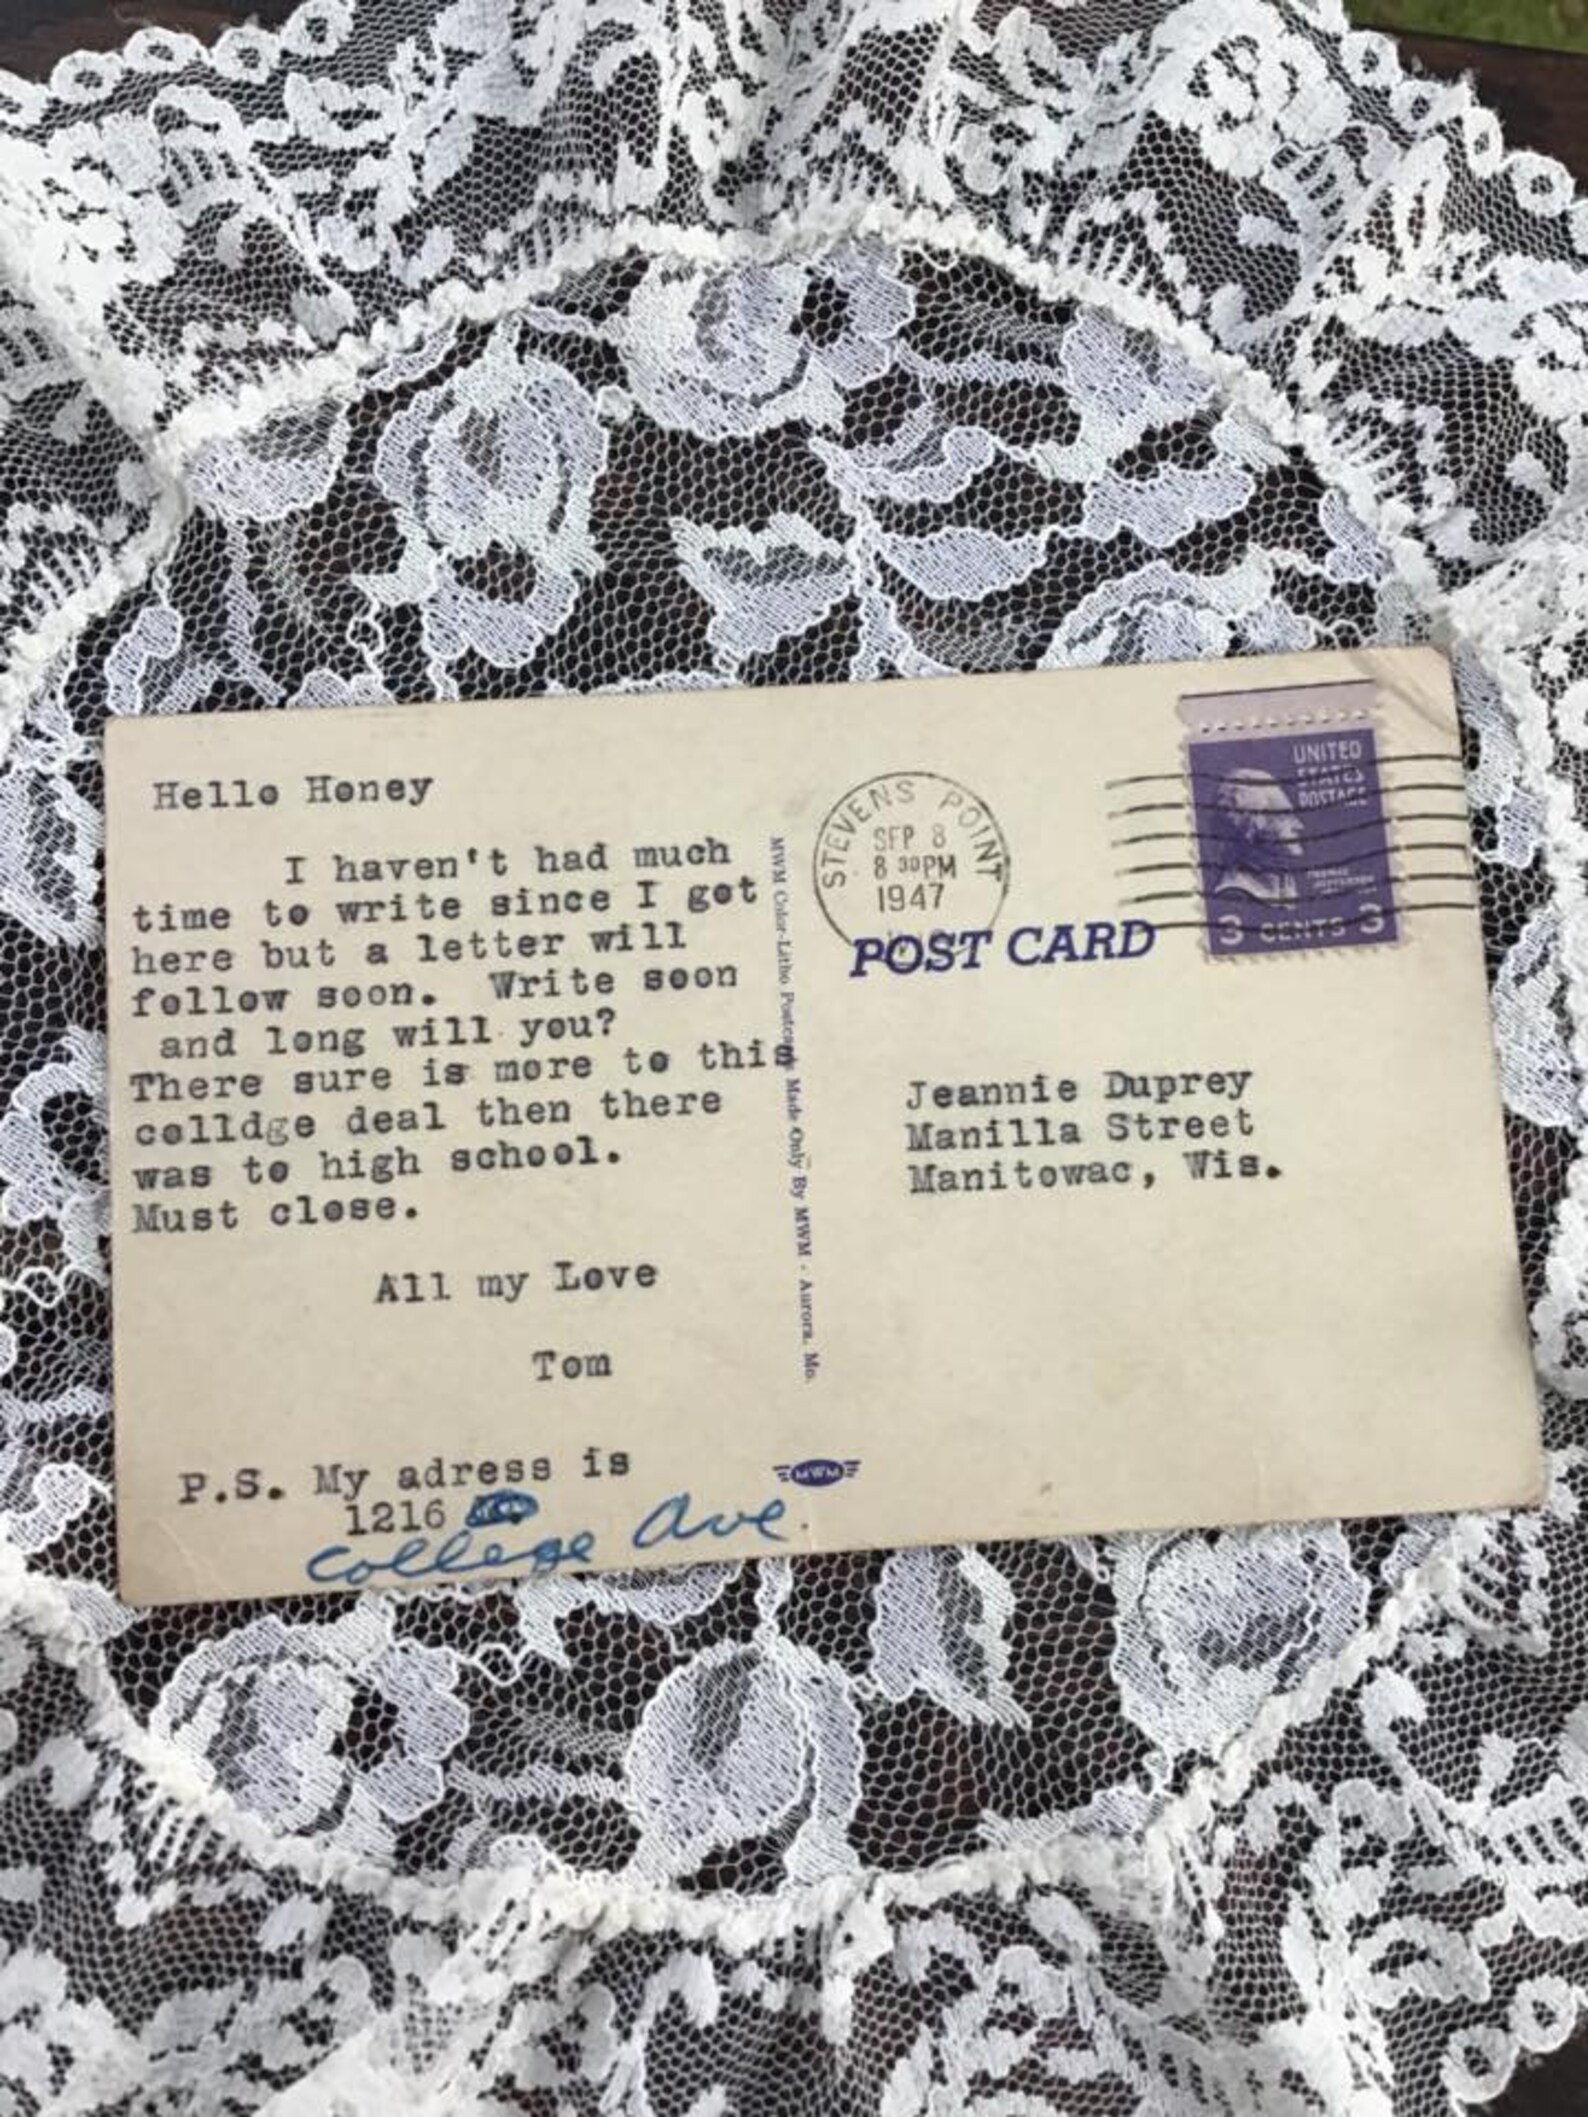 Hello Honey
I haven't had much
time to write since I got
here but a letter will
follow soon. Write soon
and long will you?
There sure is more to this
colldge deal then there
was to high school.
Must close.
All my Love
Tom
P.S. My adress is
1216
College Ave.
MWM Color-Litho Postcards Made Only By MWM · Aurora, Mo.
MWM
STEVENS POINT
SEP 8
8 30PM
1947
POST CARD
UNITED
STATES
POSTAGE
THOMAS
JEFFERSON
3 CENTS 3
Jeannie Duprey
Manilla Street
Manitowac, Wis.